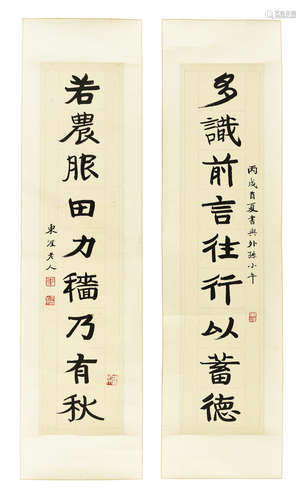 多識前言往行以蓄德
丙戌首夏書與外孫小年
若農服田力穡乃有秋
東淮老人